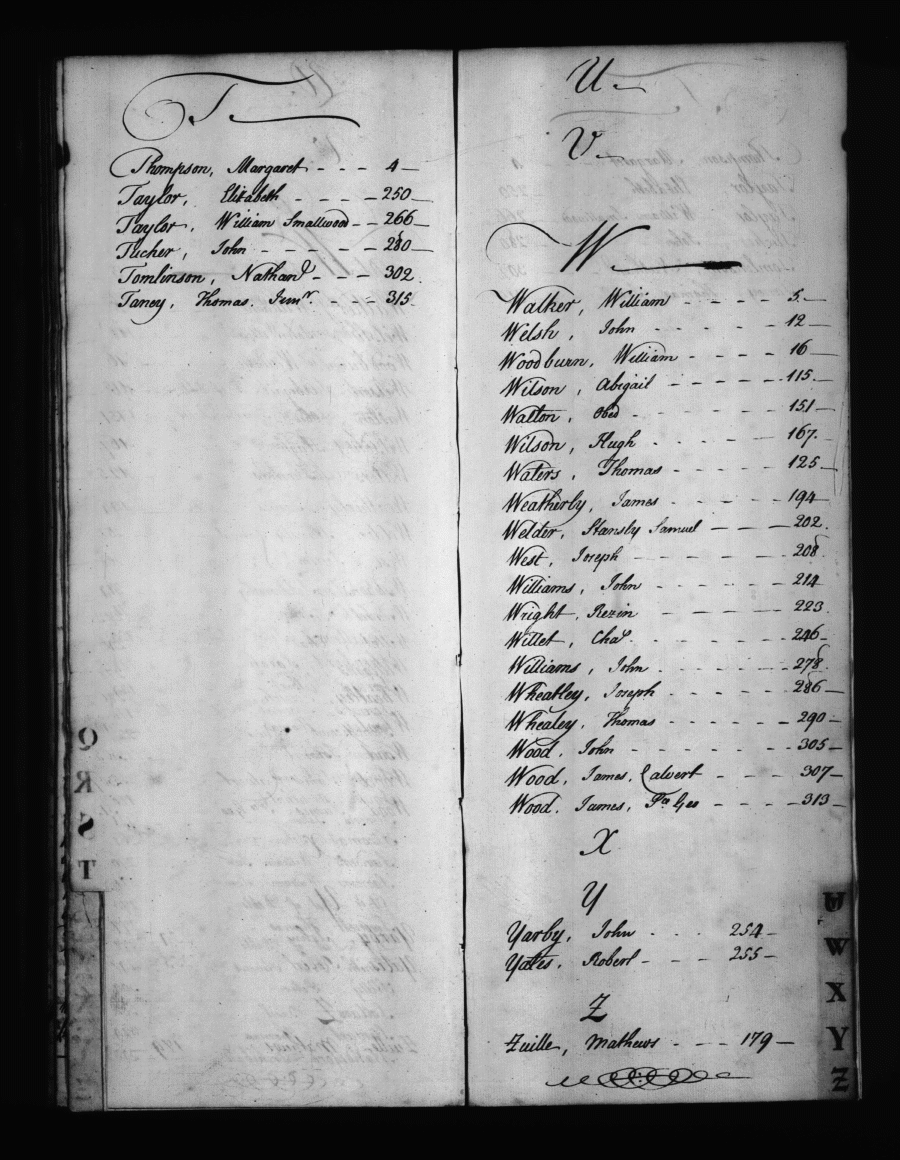 T
Thompson, Margaret - - - 4 -
Taylor, Elizabeth - - - - 250 -
Taylor, William Smallwood - - 266 -
Tucher, John - - - - - 280 -
Tomlinson, Nathan - - - 302.
Taney, Thomas. Junr. - - - 315.
Q
R
S
T
U
V
W
Walker, William - - - - - 5. -
Welsh, John - - - - - - 12 -
Woodburn, William - - - - 16 -
Wilson, Abigail - - - - - 115. -
Walton, Obed - - - - - - 151 -
Wilson, Hugh - - - - - 167.
Waters, Thomas - - - - - 125 -
Weatherby, James - - - - - 194
Welder, Stansly Samuel - - - 202.
West, Joseph - - - - - - 208
Williams, John - - - - - - 214
Wright, Rezin - - - - - - 223
Willet, Chas. - - - - - - 246
Williams, John - - - - - 278
Wheatley, Joseph - - - - - 286 -
Whealey, Thomas - - - - - 290 -
Wood. John - - - - - - 305 -
Wood, James, Calvert - - - - 307 -
Wood. James, Pr Geo - - - - 313 -
X
Y
Yarby, John - - - 254 -
Yates. Robert - - - - 255 -
Z
Zuille, Mathews - - - - 179 -
W
X
Y
Z